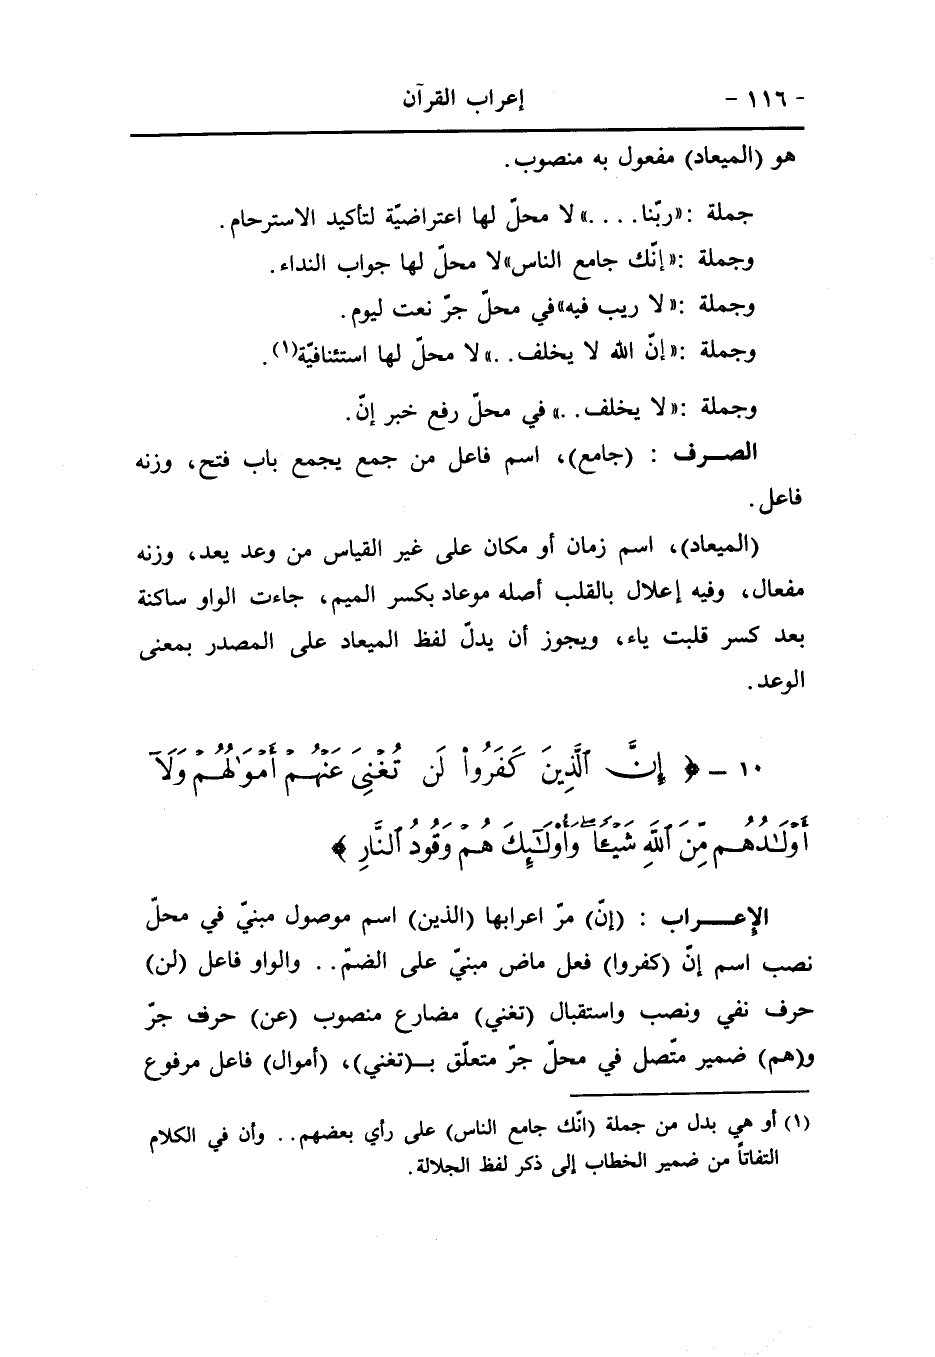 - ١١٦ - إعراب القرآن
هو (الميعاد) مفعول به منصوب.
جملة :«ربّنا. . . .» لا محلّ لها اعتراضيّة لتأكيد الاسترحام.
وجملة :«إنّك جامع الناس»لا محلّ لها جواب النداء.
وجملة :«لا ريب فيه»في محلّ جرّ نعت ليوم.
وجملة :«إنّ الله لا يخلف. .» لا محلّ لها استئنافيّة(١).
وجملة :«لا يخلف. .» في محلّ رفع خبر إنّ.
الصـرف : (جامع)، اسم فاعل من جمع يجمع باب فتح، وزنه
فاعل.
(الميعاد)، اسم زمان أو مكان على غير القياس من وعد يعد، وزنه
مفعال، وفيه إعلال بالقلب أصله موعاد بكسر الميم، جاءت الواو ساكنة
بعد كسر قلبت ياء، ويجوز أن يدلّ لفظ الميعاد على المصدر بمعنى
الوعد.
١٠ - ﴿ إِنَّ ٱلَّذِينَ كَفَرُوا۟ لَن تُغْنِىَ عَنْهُمْ أَمْوَٰلُهُمْ وَلَآ
أَوْلَٰدُهُم مِّنَ ٱللَّهِ شَيْـًٔا ۖ وَأُو۟لَٰٓئِكَ هُمْ وَقُودُ ٱلنَّارِ ﴾
الإعـــراب : (إنّ) مرّ اعرابها (الذين) اسم موصول مبنيّ في محلّ
نصب اسم إنّ (كفروا) فعل ماض مبنيّ على الضمّ. . والواو فاعل (لن)
حرف نفي ونصب واستقبال (تغني) مضارع منصوب (عن) حرف جرّ
و(هم) ضمير متّصل في محلّ جرّ متعلّق بـ(تغني)، (أموال) فاعل مرفوع
(١) أو هي بدل من جملة (انّك جامع الناس) على رأي بعضهم. . وأن في الكلام
التفاتاً من ضمير الخطاب إلى ذكر لفظ الجلالة.